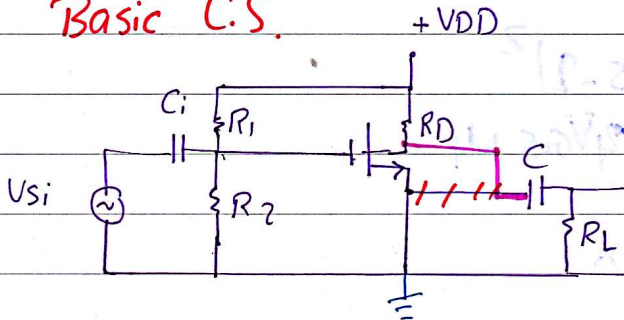 Basic C.S.
+VDD
Ci
R1
RD
C
Vsi
R2
RL